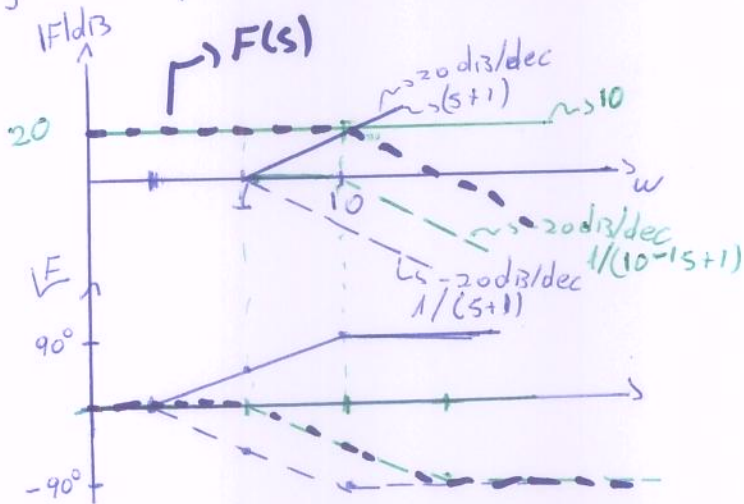 |F|dB
F(s)
20 dB/dec
(s+1)
10
20
ω
1 10
-20dB/dec
1/(10^-1s+1)
-20dB/dec
1/(s+1)
∠F
90°
-90°